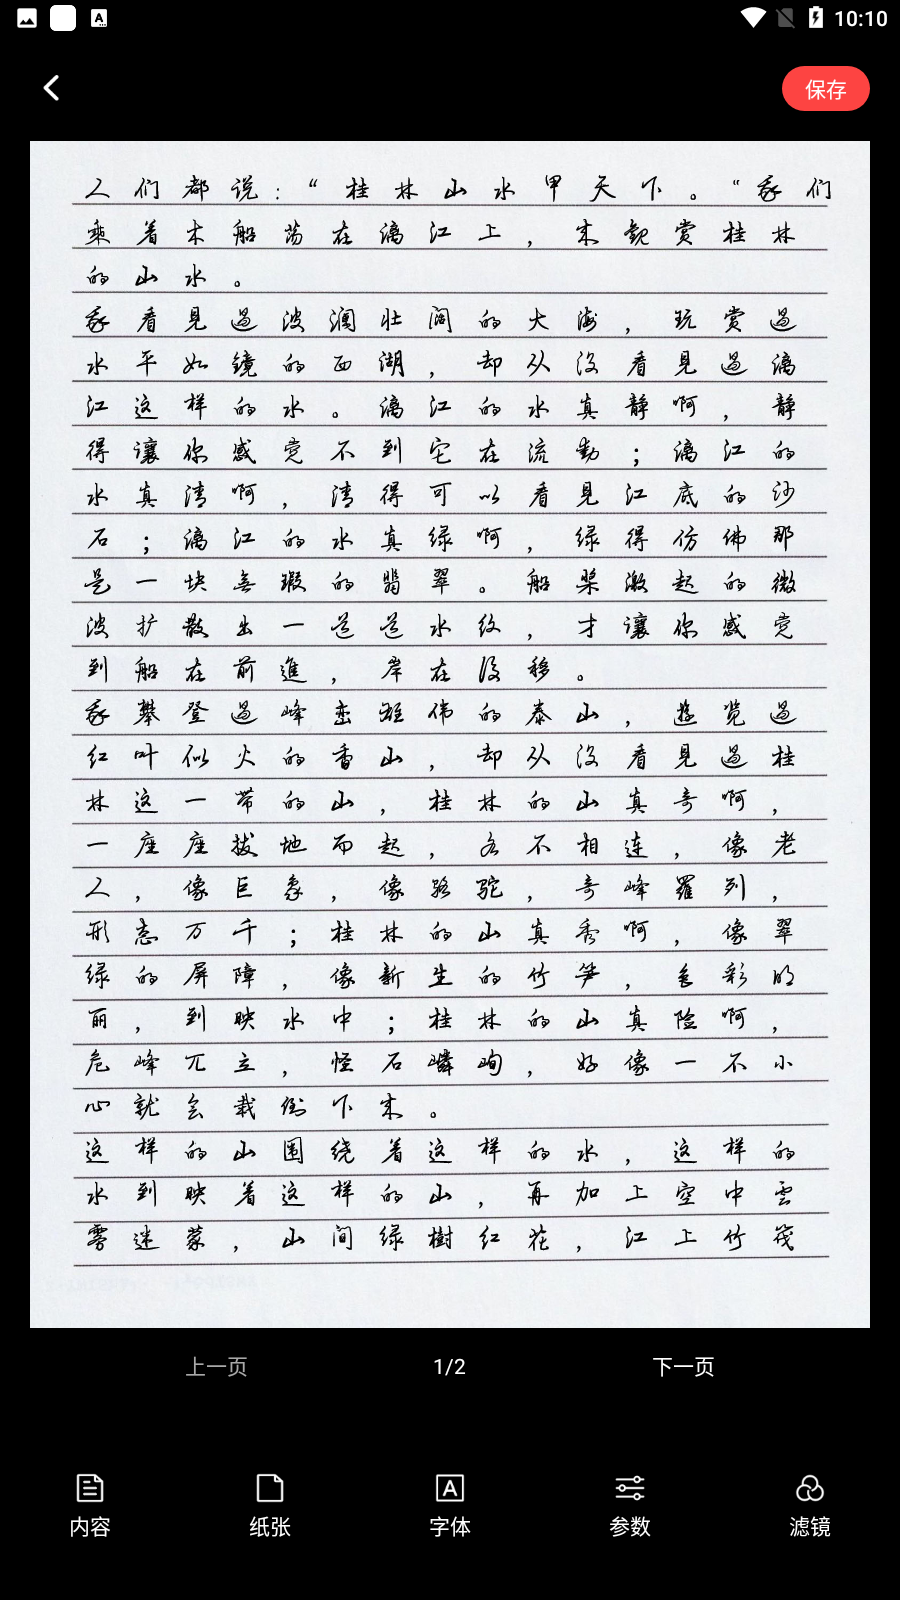 10:10
保存
人们都说：“桂林山水甲天下。“我们
乘着木船荡在漓江上，来觀赏桂林
的山水。
我看見過波澜壮阔的大海，玩赏過
水平如镜的西湖，却从没看見過漓
江这样的水。漓江的水真静啊，静
得讓你感觉不到它在流動；漓江的
水真清啊，清得可以看見江底的沙
石；漓江的水真绿啊，绿得仿佛那
是一块無瑕的翡翠。船桨激起的微
波扩散出一道道水纹，才讓你感觉
到船在前進，岸在後移。
我攀登過峰峦雄伟的泰山，遊览過
红叶似火的香山，却从没看見過桂
林这一带的山，桂林的山真奇啊，
一座座拔地而起，各不相连，像老
人，像巨象，像骆驼，奇峰羅列，
形态万千；桂林的山真秀啊，像翠
绿的屏障，像新生的竹笋，色彩明
丽，到映水中；桂林的山真险啊，
危峰兀立，怪石嶙峋，好像一不小
心就会栽倒下来。
这样的山围绕着这样的水，这样的
水到映着这样的山，再加上空中雲
雾迷蒙，山间绿樹红花，江上竹筏
上一页 1/2 下一页
内容 纸张 字体 参数 滤镜